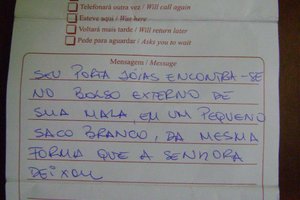 Telefonará outra vez / Will call again
Esteve aqui / Was here
Voltará mais tarde / Will return later
Pede para aguardar / Asks you to wait
Mensagem / Message
SEU PORTA JÓIAS ENCONTRA-SE
NO BOLSO EXTERNO DE
SUA MALA, EM UM PEQUENO
SACO BRANCO, DA MESMA
FORMA QUE A SENHORA
DEIXOU